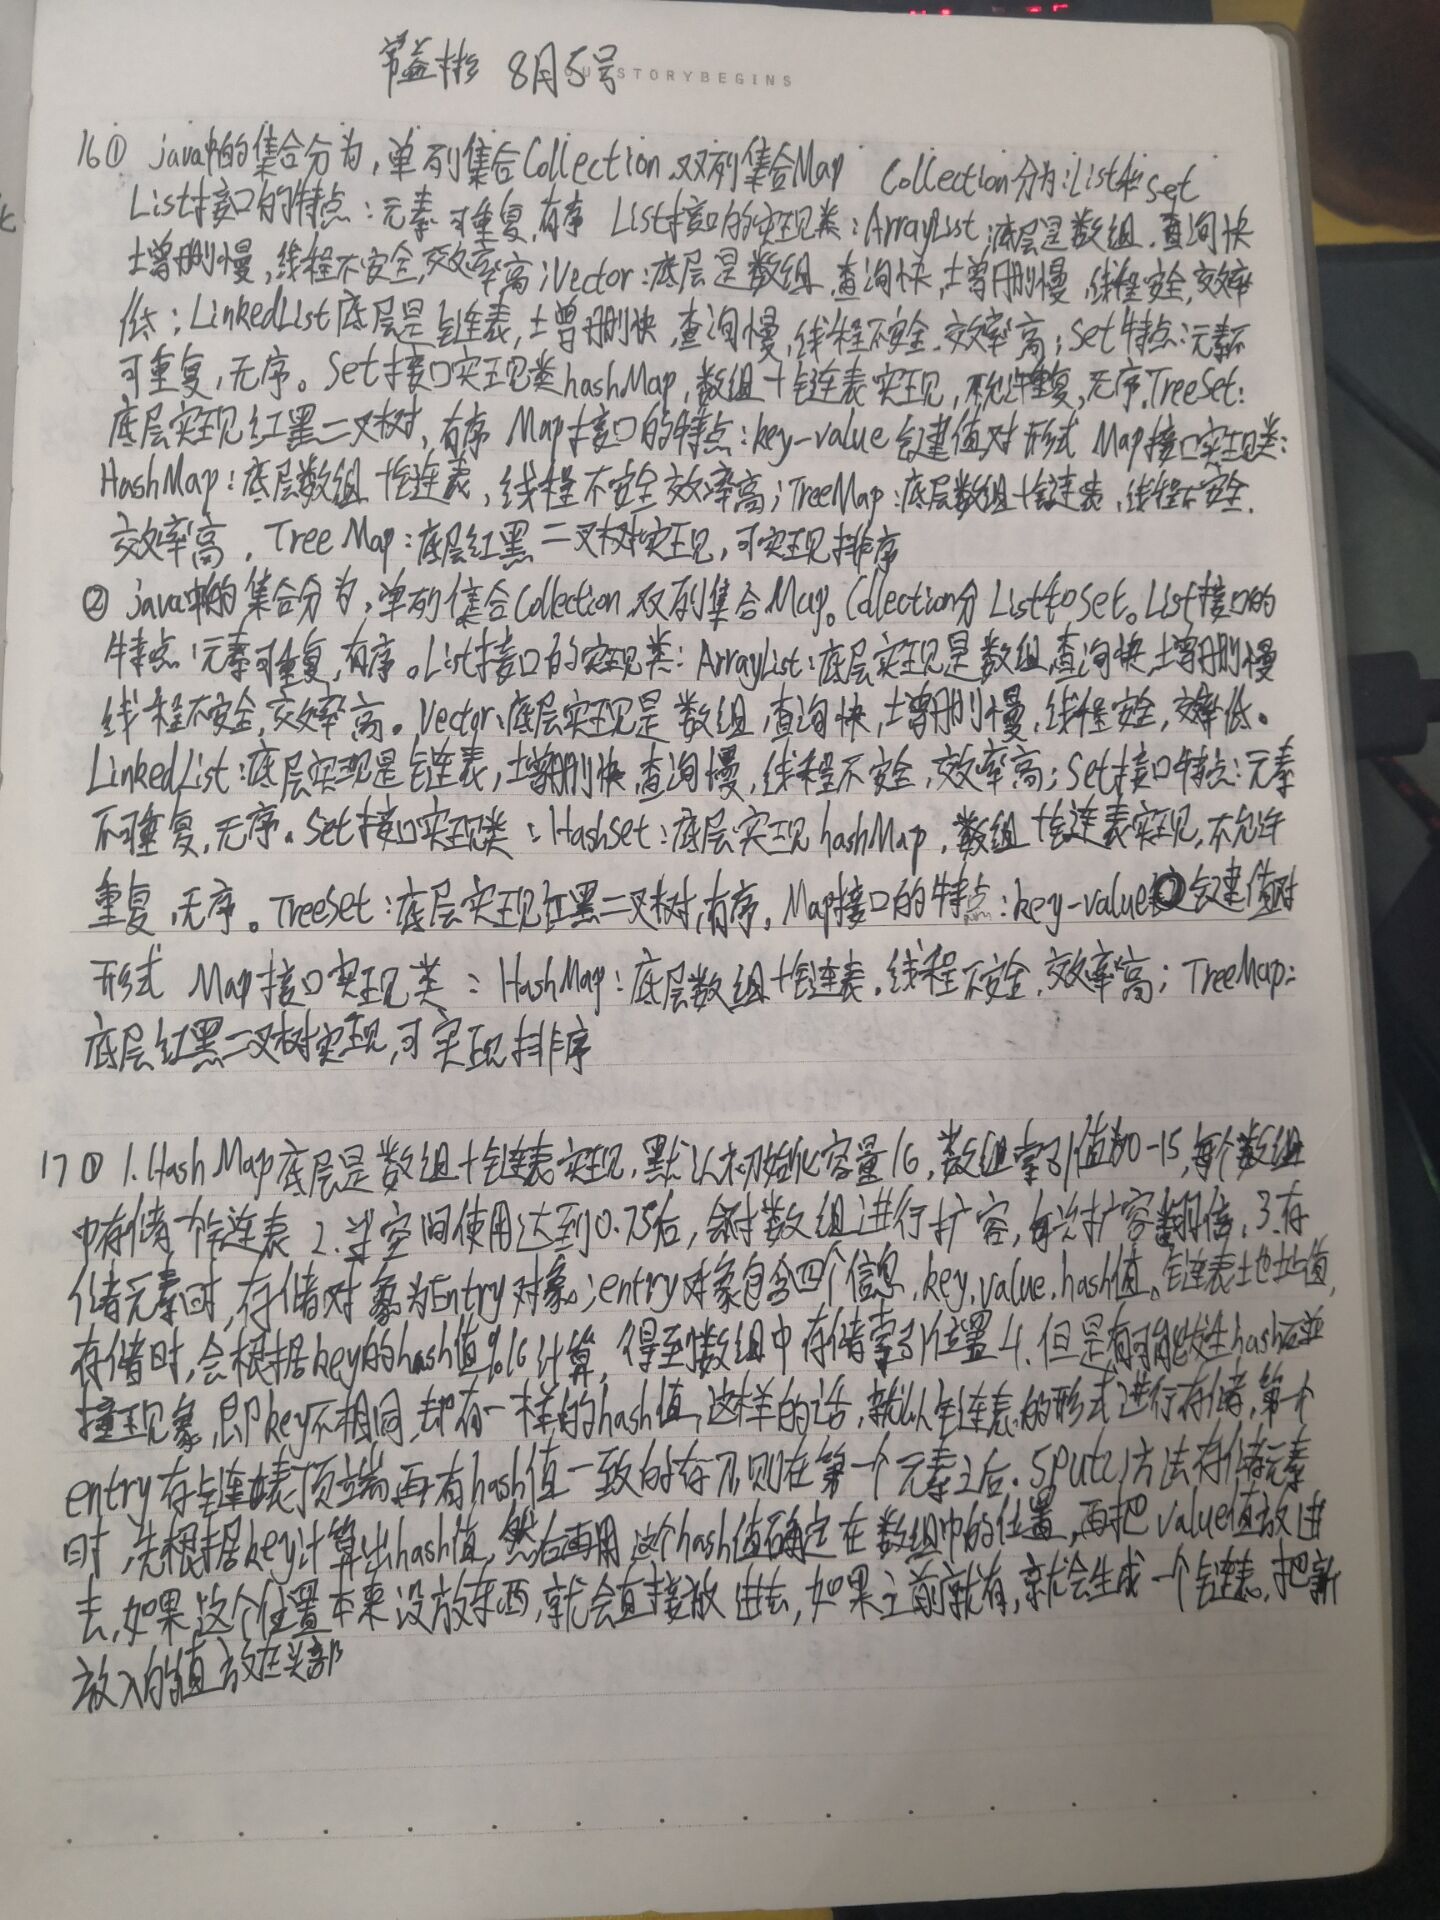 常益彬 8月5号
OUR STORY BEGINS
16① java中的集合分为,单列集合Collection、双列集合Map Collection分为:List和Set
List接口的特点:元素可重复,有序 List接口的实现类:ArrayList:底层是数组,查询快
增删慢,线程不安全,效率高;Vector:底层是数组,查询快,增删慢,线程安全,效率
低;LinkedList底层是链表,增删快,查询慢,线程不安全,效率高;Set特点:元素不
可重复,无序。Set接口实现类hashMap,数组+链表实现,不允许重复,无序.TreeSet:
底层实现红黑二叉树,有序 Map接口的特点:key-value 键值对形式 Map接口实现类:
HashMap:底层数组+链表,线程不安全效率高;TreeMap:底层数组+链表,线程不安全.
效率高,TreeMap:底层红黑二叉树实现,可实现排序
② java中的集合分为,单列集合Collection、双列集合Map。Collection分List和Set。List接口的
特点:元素可重复,有序。List接口的实现类:ArrayList:底层实现是数组,查询快,增删慢
线程不安全,效率高。Vector:底层实现是数组,查询快,增删慢,线程安全,效率低。
LinkedList:底层实现是链表,增删快,查询慢,线程不安全,效率高;Set接口特点:元素
不可重复,无序。Set接口实现类:HashSet:底层实现hashMap,数组+链表实现,不允许
重复,无序。TreeSet:底层实现红黑二叉树,有序,Map接口的特点:key-value键值对
形式 Map接口实现类:HashMap:底层数组+链表,线程不安全,效率高;TreeMap:
底层红黑二叉树实现,可实现排序
17① 1.HashMap底层是数组+链表实现,默认初始化容量16,数组索引值为0-15,每个数组
中存储一个链表 2.当空间使用达到0.75后,会对数组进行扩容,每次扩容翻倍,3.存
储元素时,存储对象为Entry对象;entry对象包含四个信息,key,value,hash值。链表地址值,
存储时,会根据key的hash值%16计算,得到数组中存储索引位置4.但是有可能发生hash碰
撞现象,即key不相同,却有一样的hash值,这样的话,就以链表的形式进行存储,第一个
entry存链表顶端,再有hash值一致的存入则在第一个元素之后.5put()方法存储元素
时,先根据key计算出hash值,然后再用这个hash值确定在数组中的位置,再把value值放进
去,如果这个位置本来没放东西,就会直接放进去,如果之前就有,就会生成一个链表,把新
放入的值放在头部